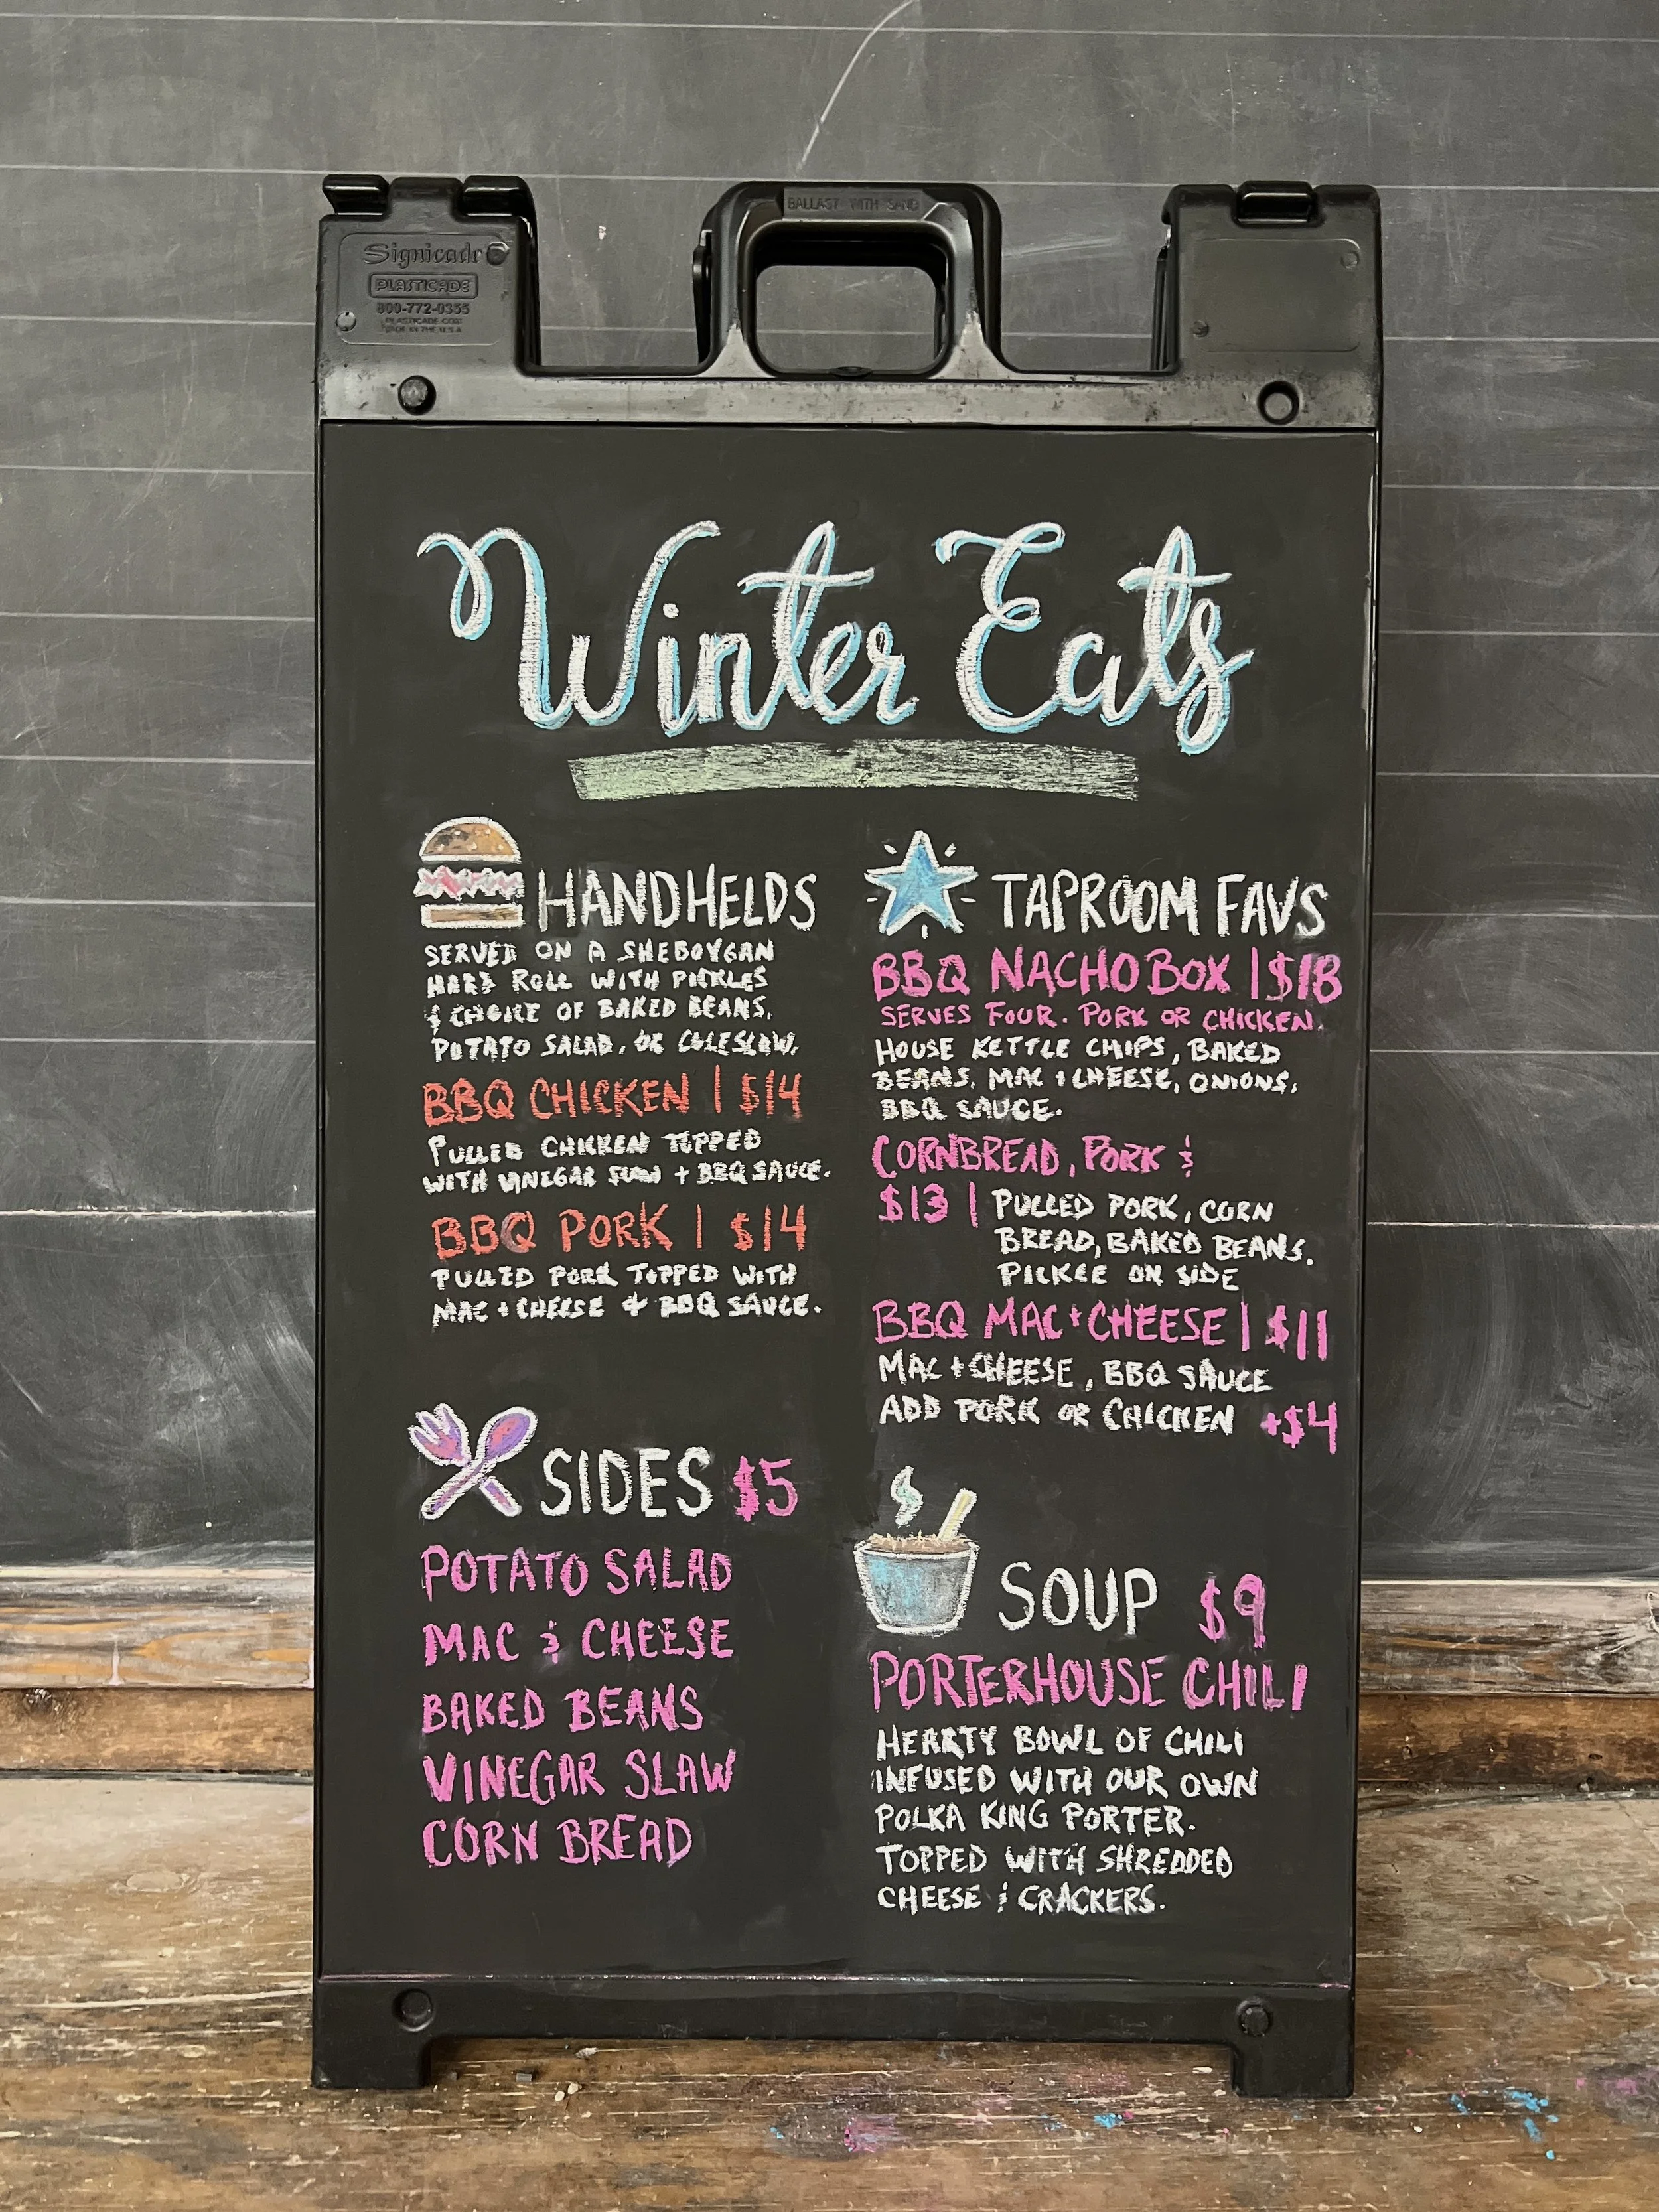 BALLAST WITH SAND
Signicade
PLASTICADE
800-772-0355
PLASTICADE.COM
MADE IN THE U.S.A
Winter Eats
HANDHELDS
SERVED ON A SHEBOYGAN
HARD ROLL WITH PICKLES
& CHOICE OF BAKED BEANS,
POTATO SALAD, OR COLESLAW.
BBQ CHICKEN | $14
PULLED CHICKEN TOPPED
WITH VINEGAR SLAW + BBQ SAUCE.
BBQ PORK | $14
PULLED PORK TOPPED WITH
MAC + CHEESE & BBQ SAUCE.
SIDES $5
POTATO SALAD
MAC & CHEESE
BAKED BEANS
VINEGAR SLAW
CORN BREAD
TAPROOM FAVS
BBQ NACHO BOX | $18
SERVES FOUR. PORK OR CHICKEN.
HOUSE KETTLE CHIPS, BAKED
BEANS, MAC + CHEESE, ONIONS,
BBQ SAUCE.
CORNBREAD, PORK &
$13 | PULLED PORK, CORN
BREAD, BAKED BEANS.
PICKLE ON SIDE
BBQ MAC + CHEESE | $11
MAC + CHEESE, BBQ SAUCE
ADD PORK OR CHICKEN +$4
SOUP $9
PORTERHOUSE CHILI
HEARTY BOWL OF CHILI
INFUSED WITH OUR OWN
POLKA KING PORTER.
TOPPED WITH SHREDDED
CHEESE & CRACKERS.